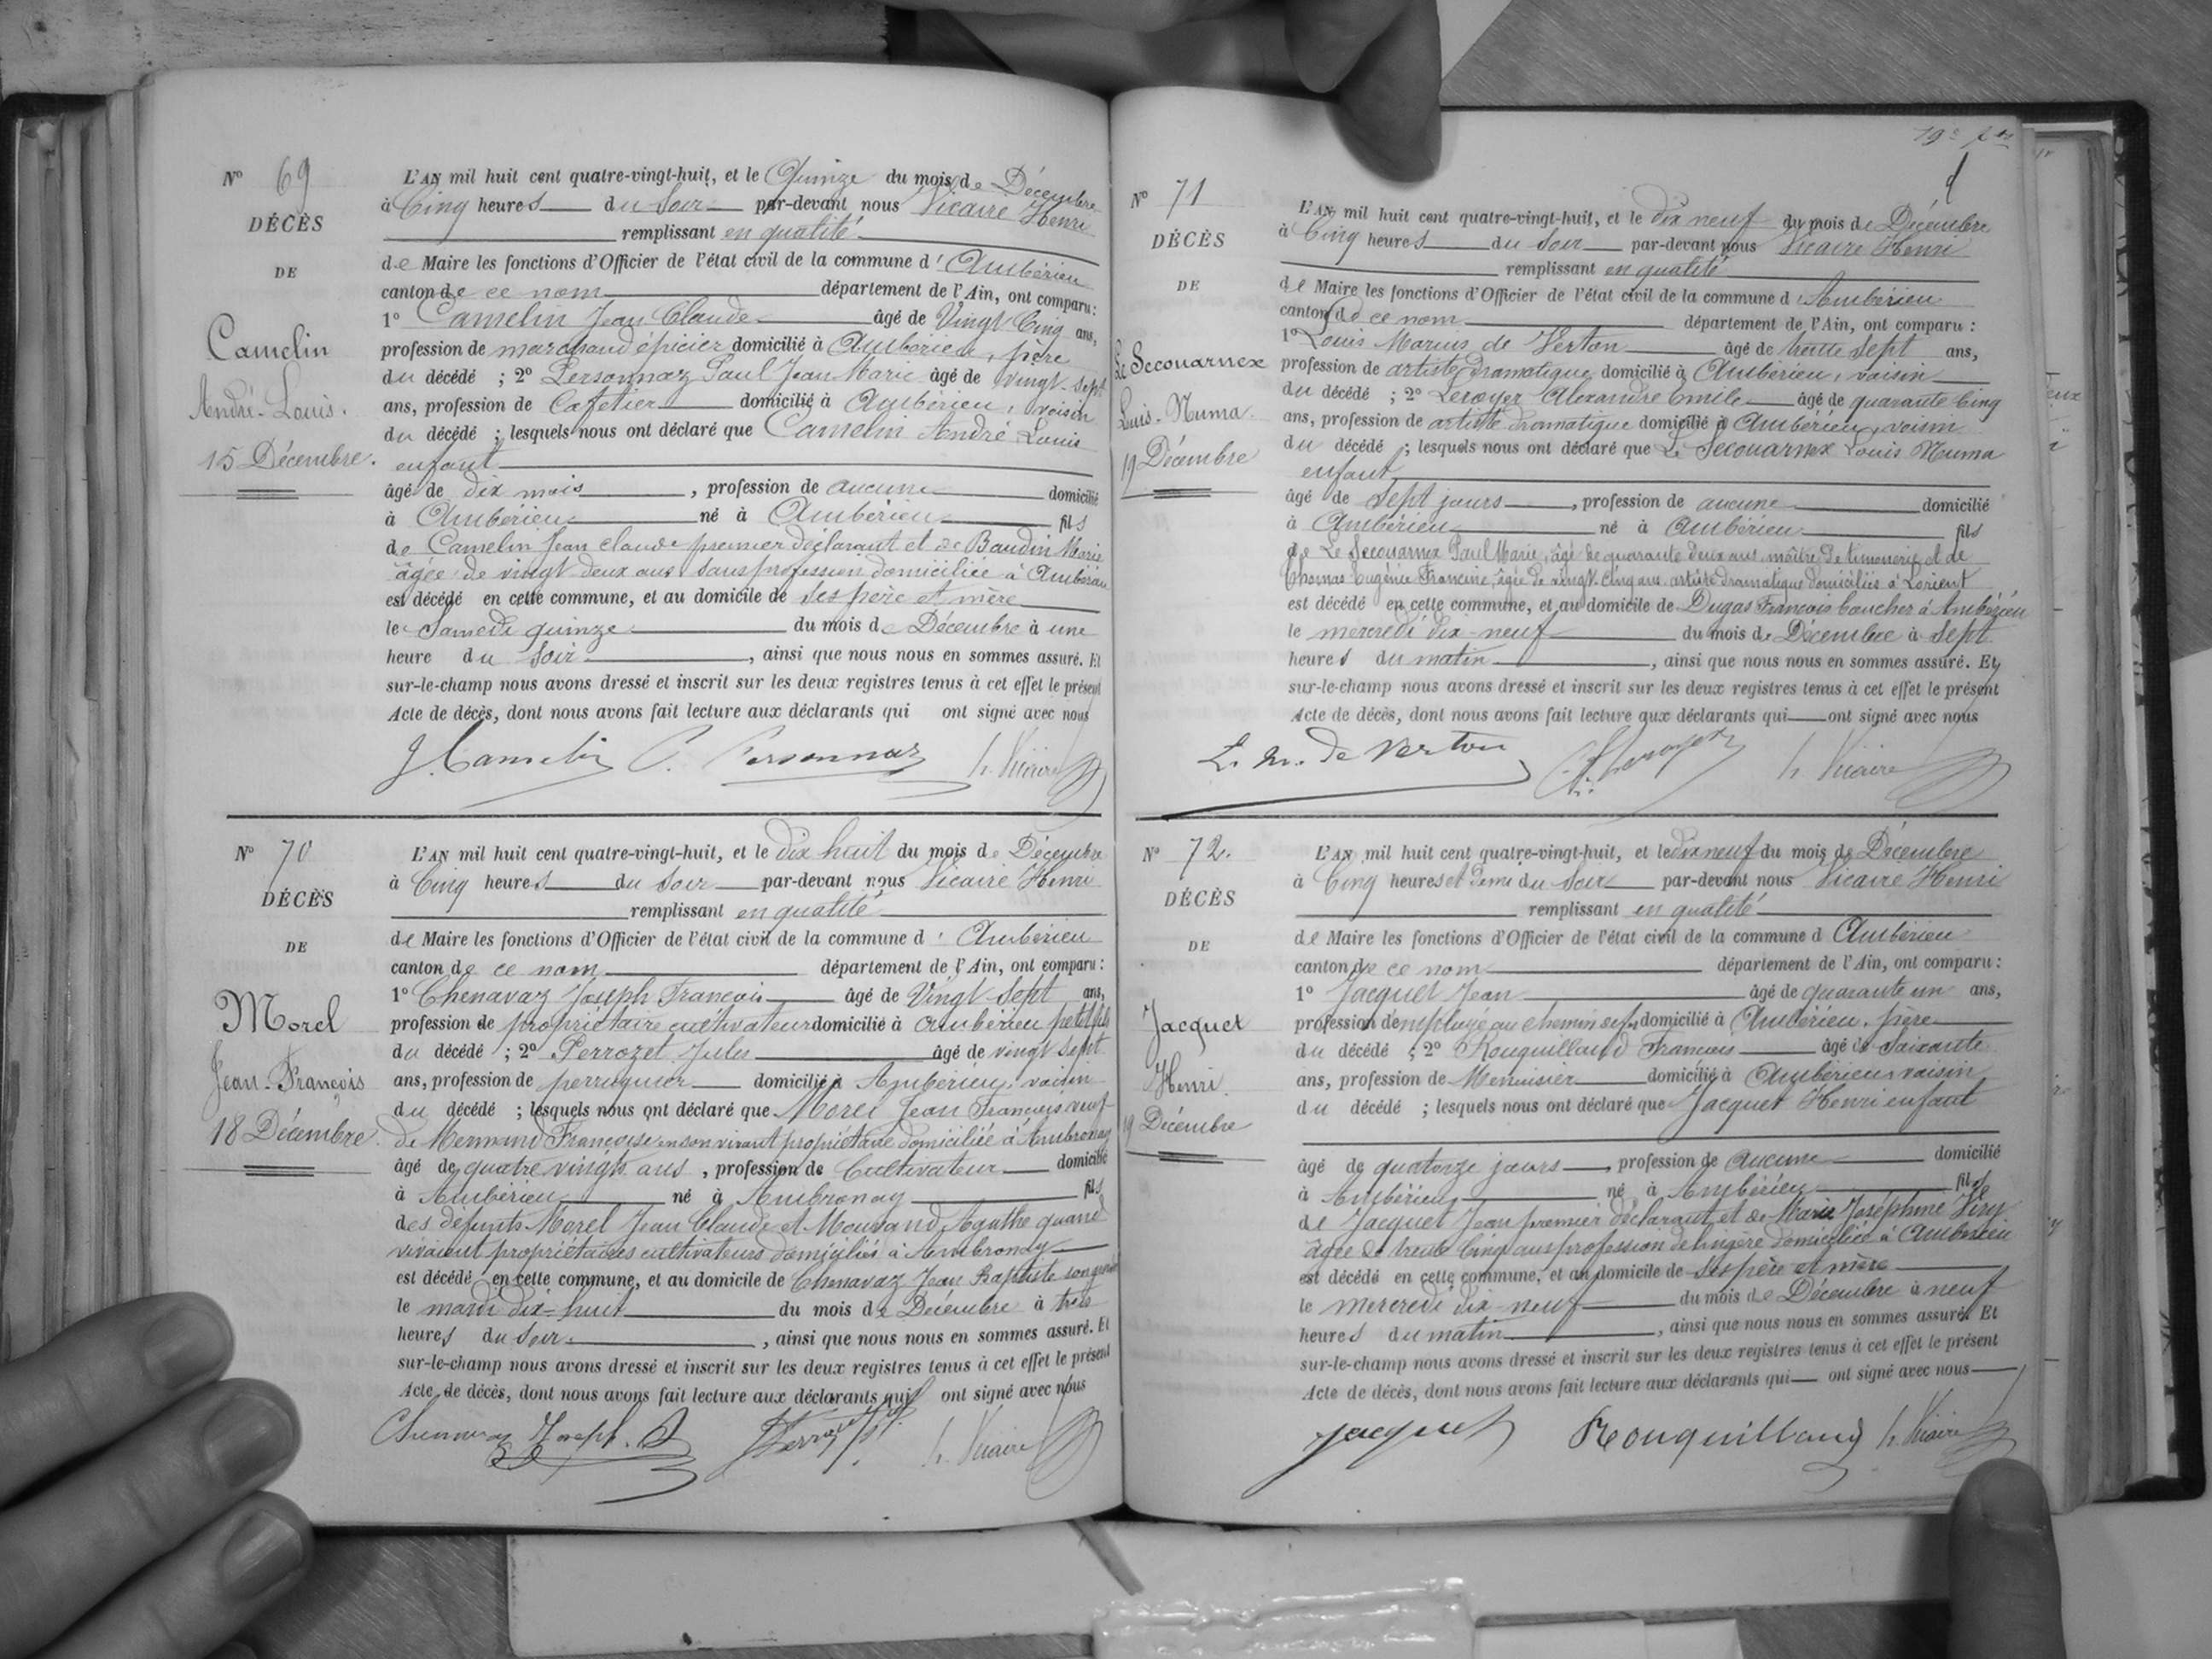 Nº 69
DÉCÈS
DE
Camelin
André-Louis.
15 Décembre.
L'AN mil huit cent quatre-vingt-huit, et le Quinze du mois de Décembre
à Cinq heures du Soir par-devant nous Vicaire Henri
remplissant en qualité
de Maire les fonctions d'Officier de l'état civil de la commune d'Ambérieu
canton de ce nom département de l'Ain, ont comparu :
1º Camelin Jean Claude âgé de Vingt Cinq ans,
profession de marchand épicier domicilié à Ambérieu, père
du décédé ; 2º Personnaz Paul Jean Marie âgé de vingt-sept
ans, profession de Cafetier domicilié à Ambérieu, voisin
du décédé ; lesquels nous ont déclaré que Camelin André Louis
enfant
âgé de dix mois, profession de aucune domicilié
à Ambérieu né à Ambérieu fils
de Camelin Jean claude premier déclarant et de Baudin Marie
âgée de vingt deux ans sans profession domiciliée à Ambérieu
est décédé en cette commune, et au domicile de ses père et mère
le Samedi quinze du mois de Décembre à une
heure du Soir, ainsi que nous nous en sommes assuré. Et
sur-le-champ nous avons dressé et inscrit sur les deux registres tenus à cet effet le présent
Acte de décès, dont nous avons fait lecture aux déclarants qui ont signé avec nous
J. Camelin P. Personnaz h. Vicaire
Nº 70
DÉCÈS
DE
Morel
Jean-François
18 Décembre.
L'AN mil huit cent quatre-vingt-huit, et le dix huit du mois de Décembre
à Cinq heures du Soir par-devant nous Vicaire Henri
remplissant en qualité
de Maire les fonctions d'Officier de l'état civil de la commune d'Ambérieu
canton de ce nom département de l'Ain, ont comparu :
1º Chenavaz Joseph François âgé de Vingt Sept ans,
profession de propriétaire cultivateur domicilié à Ambérieu petit fils
du décédé ; 2º Perrozet Jules âgé de vingt sept
ans, profession de perruquier domicilié à Ambérieu, voisin
du décédé ; lesquels nous ont déclaré que Morel Jean François veuf
de Mermand Françoise en son vivant propriétaire domiciliée à Ambronay
âgé de quatre vingts ans, profession de Cultivateur domicilié
à Ambérieu né à Ambronay fils
des défunts Morel Jean Claude et Agathe quand
vivaient propriétaires cultivateurs domiciliés à Ambronay
est décédé en cette commune, et au domicile de Chenavaz Jean Baptiste son gendre
le mardi dix-huit du mois de Décembre à trois
heures du Soir, ainsi que nous nous en sommes assuré. Et
sur-le-champ nous avons dressé et inscrit sur les deux registres tenus à cet effet le présent
Acte de décès, dont nous avons fait lecture aux déclarants qui ont signé avec nous
Joseph. h. Vicaire
Nº 71
DÉCÈS
DE
Le Secouarnex
Louis-Numa.
19 Décembre
L'AN mil huit cent quatre-vingt-huit, et le dix neuf du mois de Décembre
à Cinq heures du Soir par-devant nous Vicaire Henri
remplissant en qualité
de Maire les fonctions d'Officier de l'état civil de la commune d'Ambérieu
canton de ce nom département de l'Ain, ont comparu :
1º Louis Marius de Verton âgé de trente Sept ans,
profession de artiste dramatique domicilié à Ambérieu, voisin
du décédé ; 2º Leroyer Alexandre Emile âgé de quarante Cinq
ans, profession de artiste dramatique domicilié à Ambérieu, voisin
du décédé ; lesquels nous ont déclaré que Le Secouarnex Louis Numa
enfant
âgé de Sept jours, profession de aucune domicilié
à Ambérieu né à Ambérieu fils
de Le Secouarnex Paul Marie, âgé de quarante deux ans, maître de timonerie et de
Thomas Eugénie Francine, âgée de vingt cinq ans artiste dramatique domiciliés à Lorient
est décédé en cette commune, et au domicile de Dugas François boucher à Ambérieu
le mercredi dix-neuf du mois de Décembre à Sept
heures du matin, ainsi que nous nous en sommes assuré. Et
sur-le-champ nous avons dressé et inscrit sur les deux registres tenus à cet effet le présent
Acte de décès, dont nous avons fait lecture aux déclarants qui ont signé avec nous
L. M. de Verton h. Vicaire
Nº 72.
DÉCÈS
DE
Jacquet
Henri.
19 Décembre
L'AN mil huit cent quatre-vingt-huit, et le dix neuf du mois de Décembre
à Cinq heures et demi du Soir par-devant nous Vicaire Henri
remplissant en qualité
de Maire les fonctions d'Officier de l'état civil de la commune d Ambérieu
canton de ce nom département de l'Ain, ont comparu :
1º Jacquet Jean âgé de quarante un ans,
profession de employé au chemin de domicilié à Ambérieu, père
du décédé ; 2º Rouquillaud François âgé de Soixante
ans, profession de Menuisier domicilié à Ambérieu voisin
du décédé ; lesquels nous ont déclaré que Jacquet Henri enfant
âgé de quatorze jours, profession de aucune domicilié
à Ambérieu né à Ambérieu fils
de Jacquet Jean premier déclarant et de Marie Joséphine
âgée de trente Cinq ans profession de lingère domiciliée à Ambérieu
est décédé en cette commune, et au domicile de ses père et mère
le mercredi dix-neuf du mois de Décembre à neuf
heures du matin, ainsi que nous nous en sommes assuré. Et
sur-le-champ nous avons dressé et inscrit sur les deux registres tenus à cet effet le présent
Acte de décès, dont nous avons fait lecture aux déclarants qui ont signé avec nous
Jacquet Rouquillaud h. Vicaire